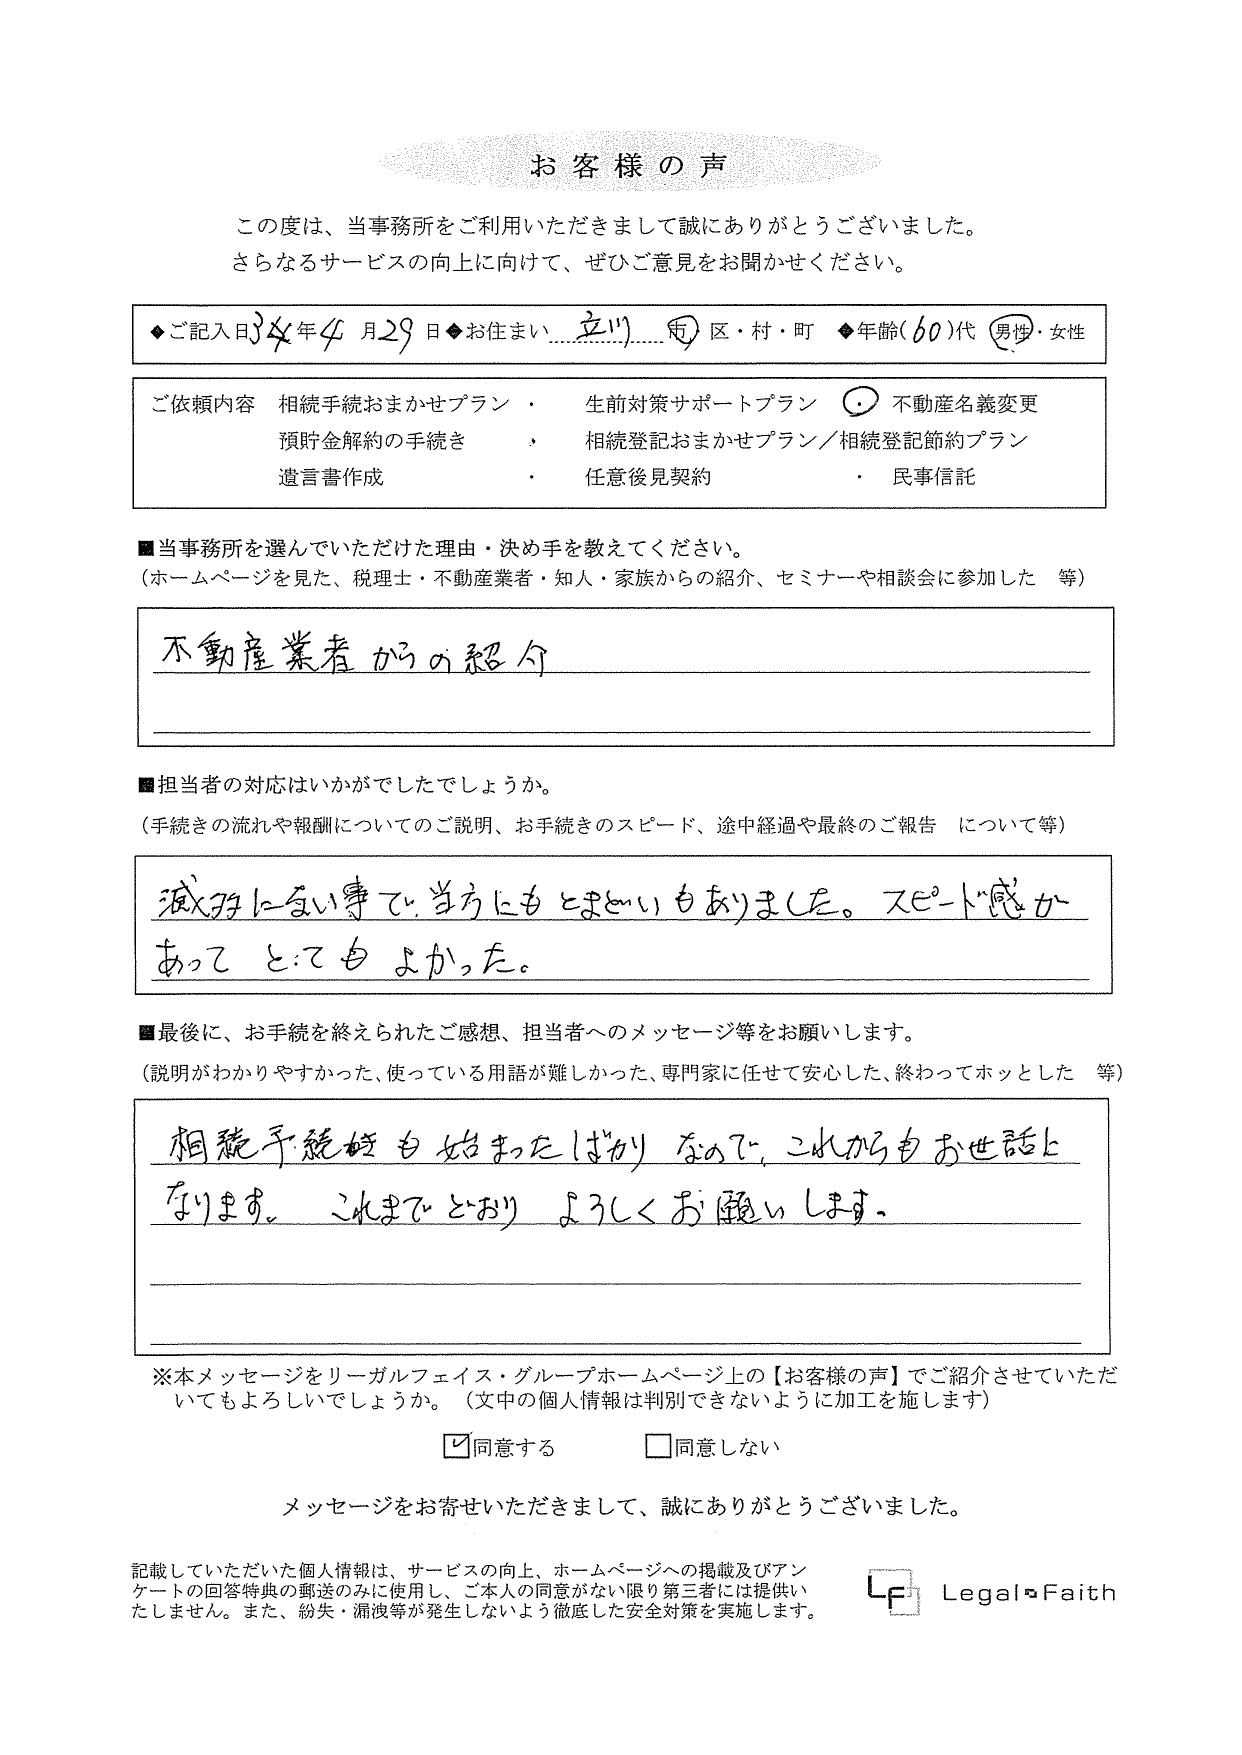 お客様の声
この度は、当事務所をご利用いただきまして誠にありがとうございました。
さらなるサービスの向上に向けて、ぜひご意見をお聞かせください。
◆ご記入日 年4月29日◆お住まい 立川 市・区・村・町 ◆年齢(60)代 男性・女性
ご依頼内容 相続手続おまかせプラン ・ 生前対策サポートプラン ・ 不動産名義変更
預貯金解約の手続き ・ 相続登記おまかせプラン／相続登記節約プラン
遺言書作成 ・ 任意後見契約 ・ 民事信託
■当事務所を選んでいただけた理由・決め手を教えてください。
（ホームページを見た、税理士・不動産業者・知人・家族からの紹介、セミナーや相談会に参加した 等）
不動産業者からの紹介
■担当者の対応はいかがでしたでしょうか。
（手続きの流れや報酬についてのご説明、お手続きのスピード、途中経過や最終のご報告 について等）
滅多にない事で、当方にもとまどいもありました。スピード感が
あって とても よかった。
■最後に、お手続を終えられたご感想、担当者へのメッセージ等をお願いします。
（説明がわかりやすかった、使っている用語が難しかった、専門家に任せて安心した、終わってホッとした 等）
相続手続きも始まったばかりなので、これからもお世話に
なります。 これまでどおり よろしくお願いします。
※本メッセージをリーガルフェイス・グループホームページ上の【お客様の声】でご紹介させていただ
いてもよろしいでしょうか。（文中の個人情報は判別できないように加工を施します）
☑同意する □同意しない
メッセージをお寄せいただきまして、誠にありがとうございました。
記載していただいた個人情報は、サービスの向上、ホームページへの掲載及びアン
ケートの回答特典の郵送のみに使用し、ご本人の同意がない限り第三者には提供い
たしません。また、紛失・漏洩等が発生しないよう徹底した安全対策を実施します。
LF Legal Faith